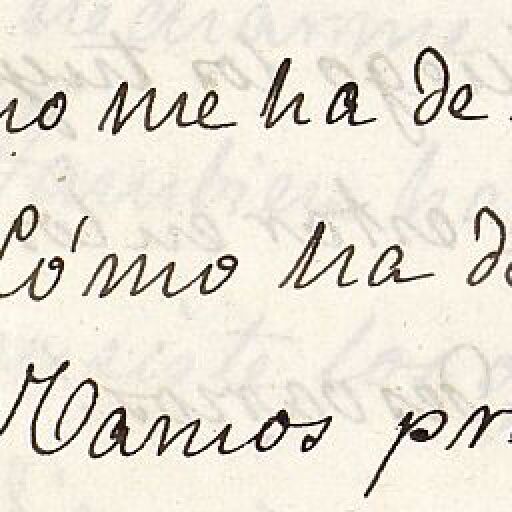 no me ha de
Cómo ha de
Vamos pr